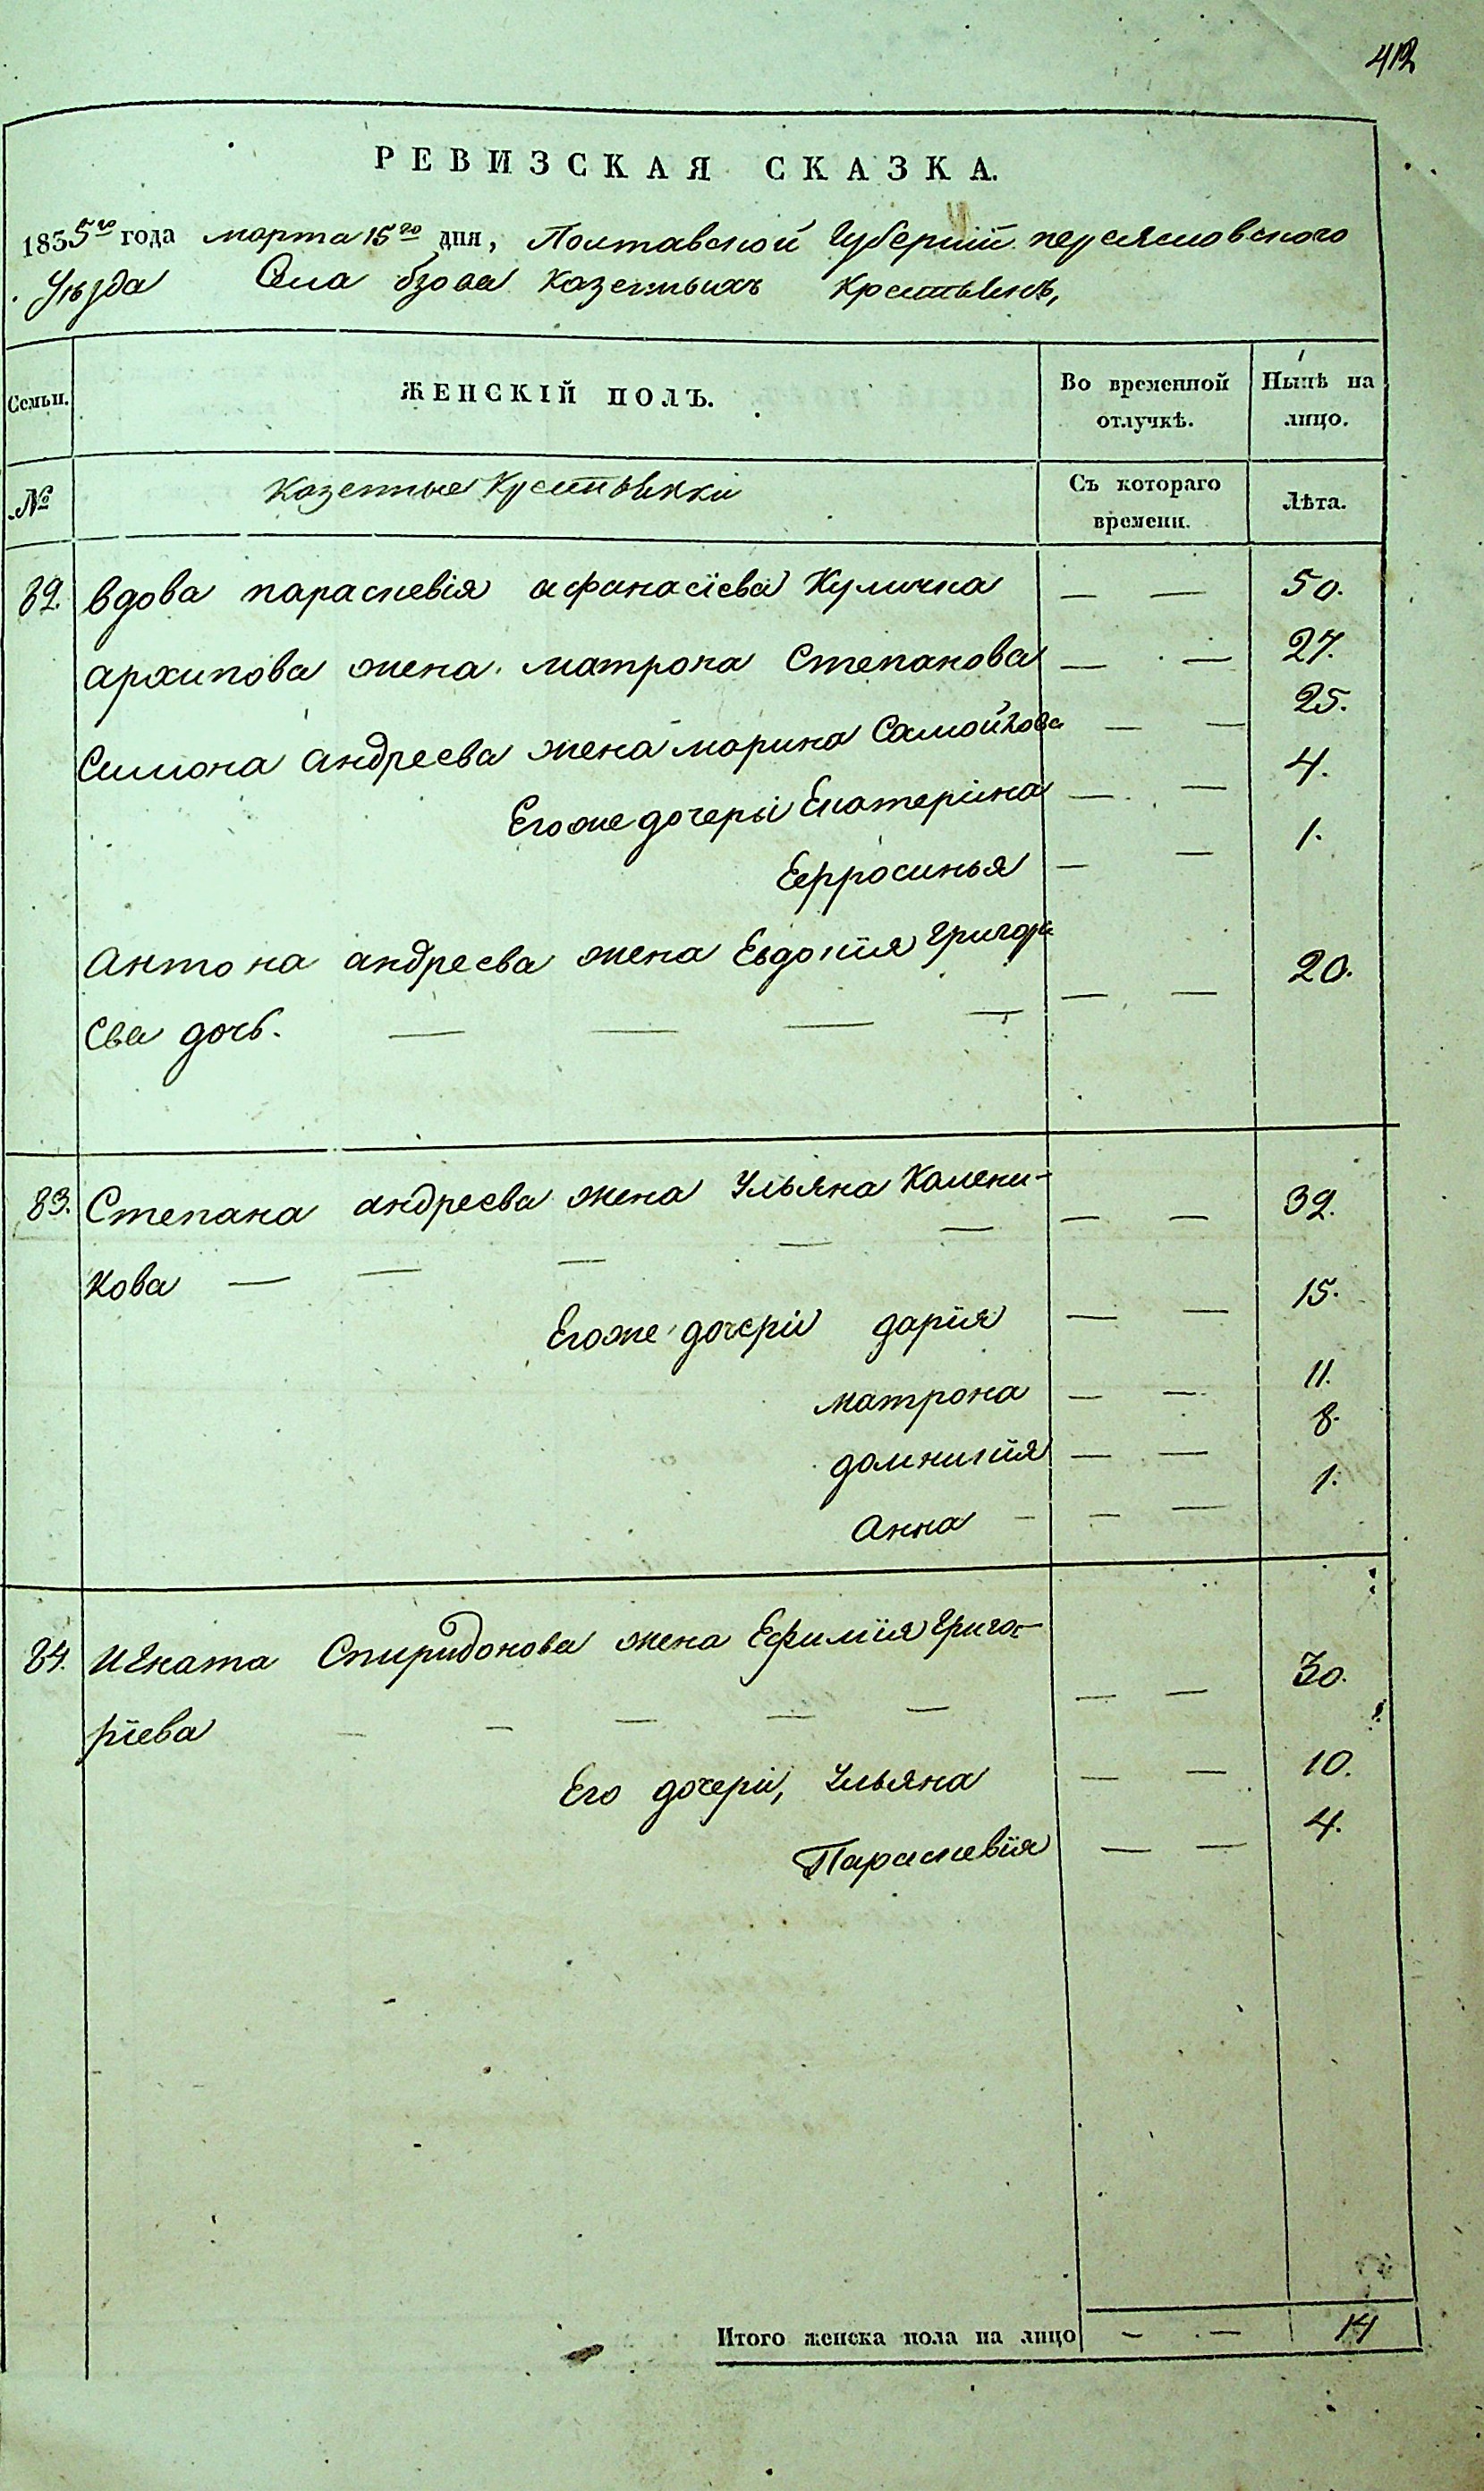 412
РЕВИЗСКАЯ СКАЗКА.
1835го года марта 15го дня, Полтавской Губернїи переясловского
Уѣзда Села бзова казенныхъ Крестьянъ,
Семьи. ЖЕНСКІЙ ПОЛЪ. Во временной отлучкѣ. Нынѣ на лицо.
№ Казенные Крестьянки Съ котораго времени. Лѣта.
82. вдова параскевія афанасїева Куличка — — 50.
архипова жена матрона Степанова — — 27.
Симона андреева жена марина Самойлова — — 25.
Егоже дочери Екатерина — — 4.
Ефросинья — — 1.
Антона андреева жена Евдокїя григорі
ева дочь. — — — — — — 20.
83. Степана андреева жена Ульяна Калени- — — 32.
кова — — — — —
Егоже дочери дарїя — — 15.
матрона — — 11.
домникїя — — 8.
Анна — — — 1.
84. Игната Спиридонова жена Ефимїя григо-
рїева — — — — — — — 30.
Его дочери, Ульяна — — 10.
Параскевїя — — 4.
Итого женска пола на лицо — — 14